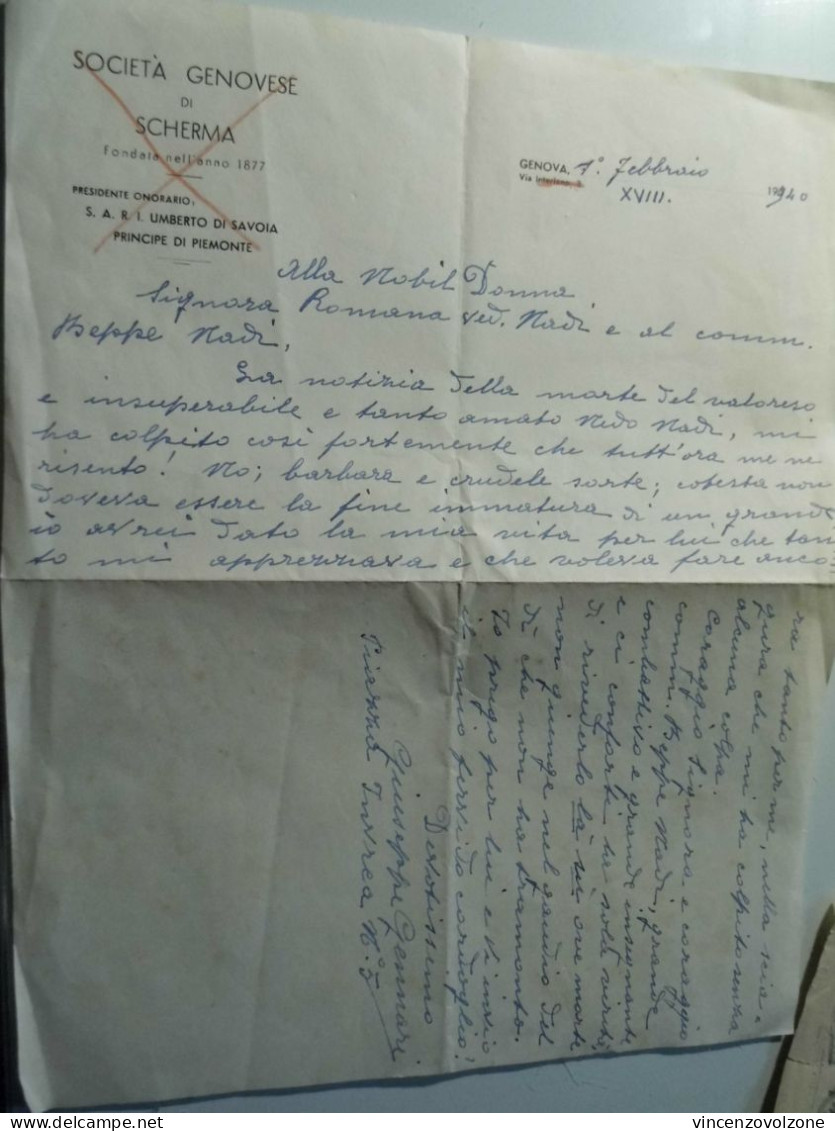 SOCIETÀ GENOVESE
DI
SCHERMA
Fondata nell'anno 1877
PRESIDENTE ONORARIO:
S. A. R. I. UMBERTO DI SAVOIA
PRINCIPE DI PIEMONTE
GENOVA, 1° Febbraio 1940
Via
XVIII.
Alla Nobil Donna
Signora Romana ved. Nadi e al comm.
Beppe Nadi,
La notizia della morte del valoroso
e insuperabile e tanto amato Nedo Nadi, mi
ha colpito così fortemente che tutt'ora me ne
risento! No; barbara e crudele sorte; cotesta non
doveva essere la fine immatura di un grande
io avrei dato la mia vita per lui che tan
to mi apprezzava e che voleva fare anco:
ra tanto per me, nella scia-
gura che mi ha colpito senza
alcuna colpa.
Coraggio Signora e coraggio
comm. Beppe Nadi, grande
combattivo e grande insegnante
e ci conforti la sola virtù
di rivederlo là su ove morte
non giunge nel gaudio del
dì che non ha tramonto.
Io prego per lui e Vi invio
il mio fervido cordoglio!
Devotissimo
Giuseppe Gennari
Piazza Invrea N.° 5
vincenzovolzone